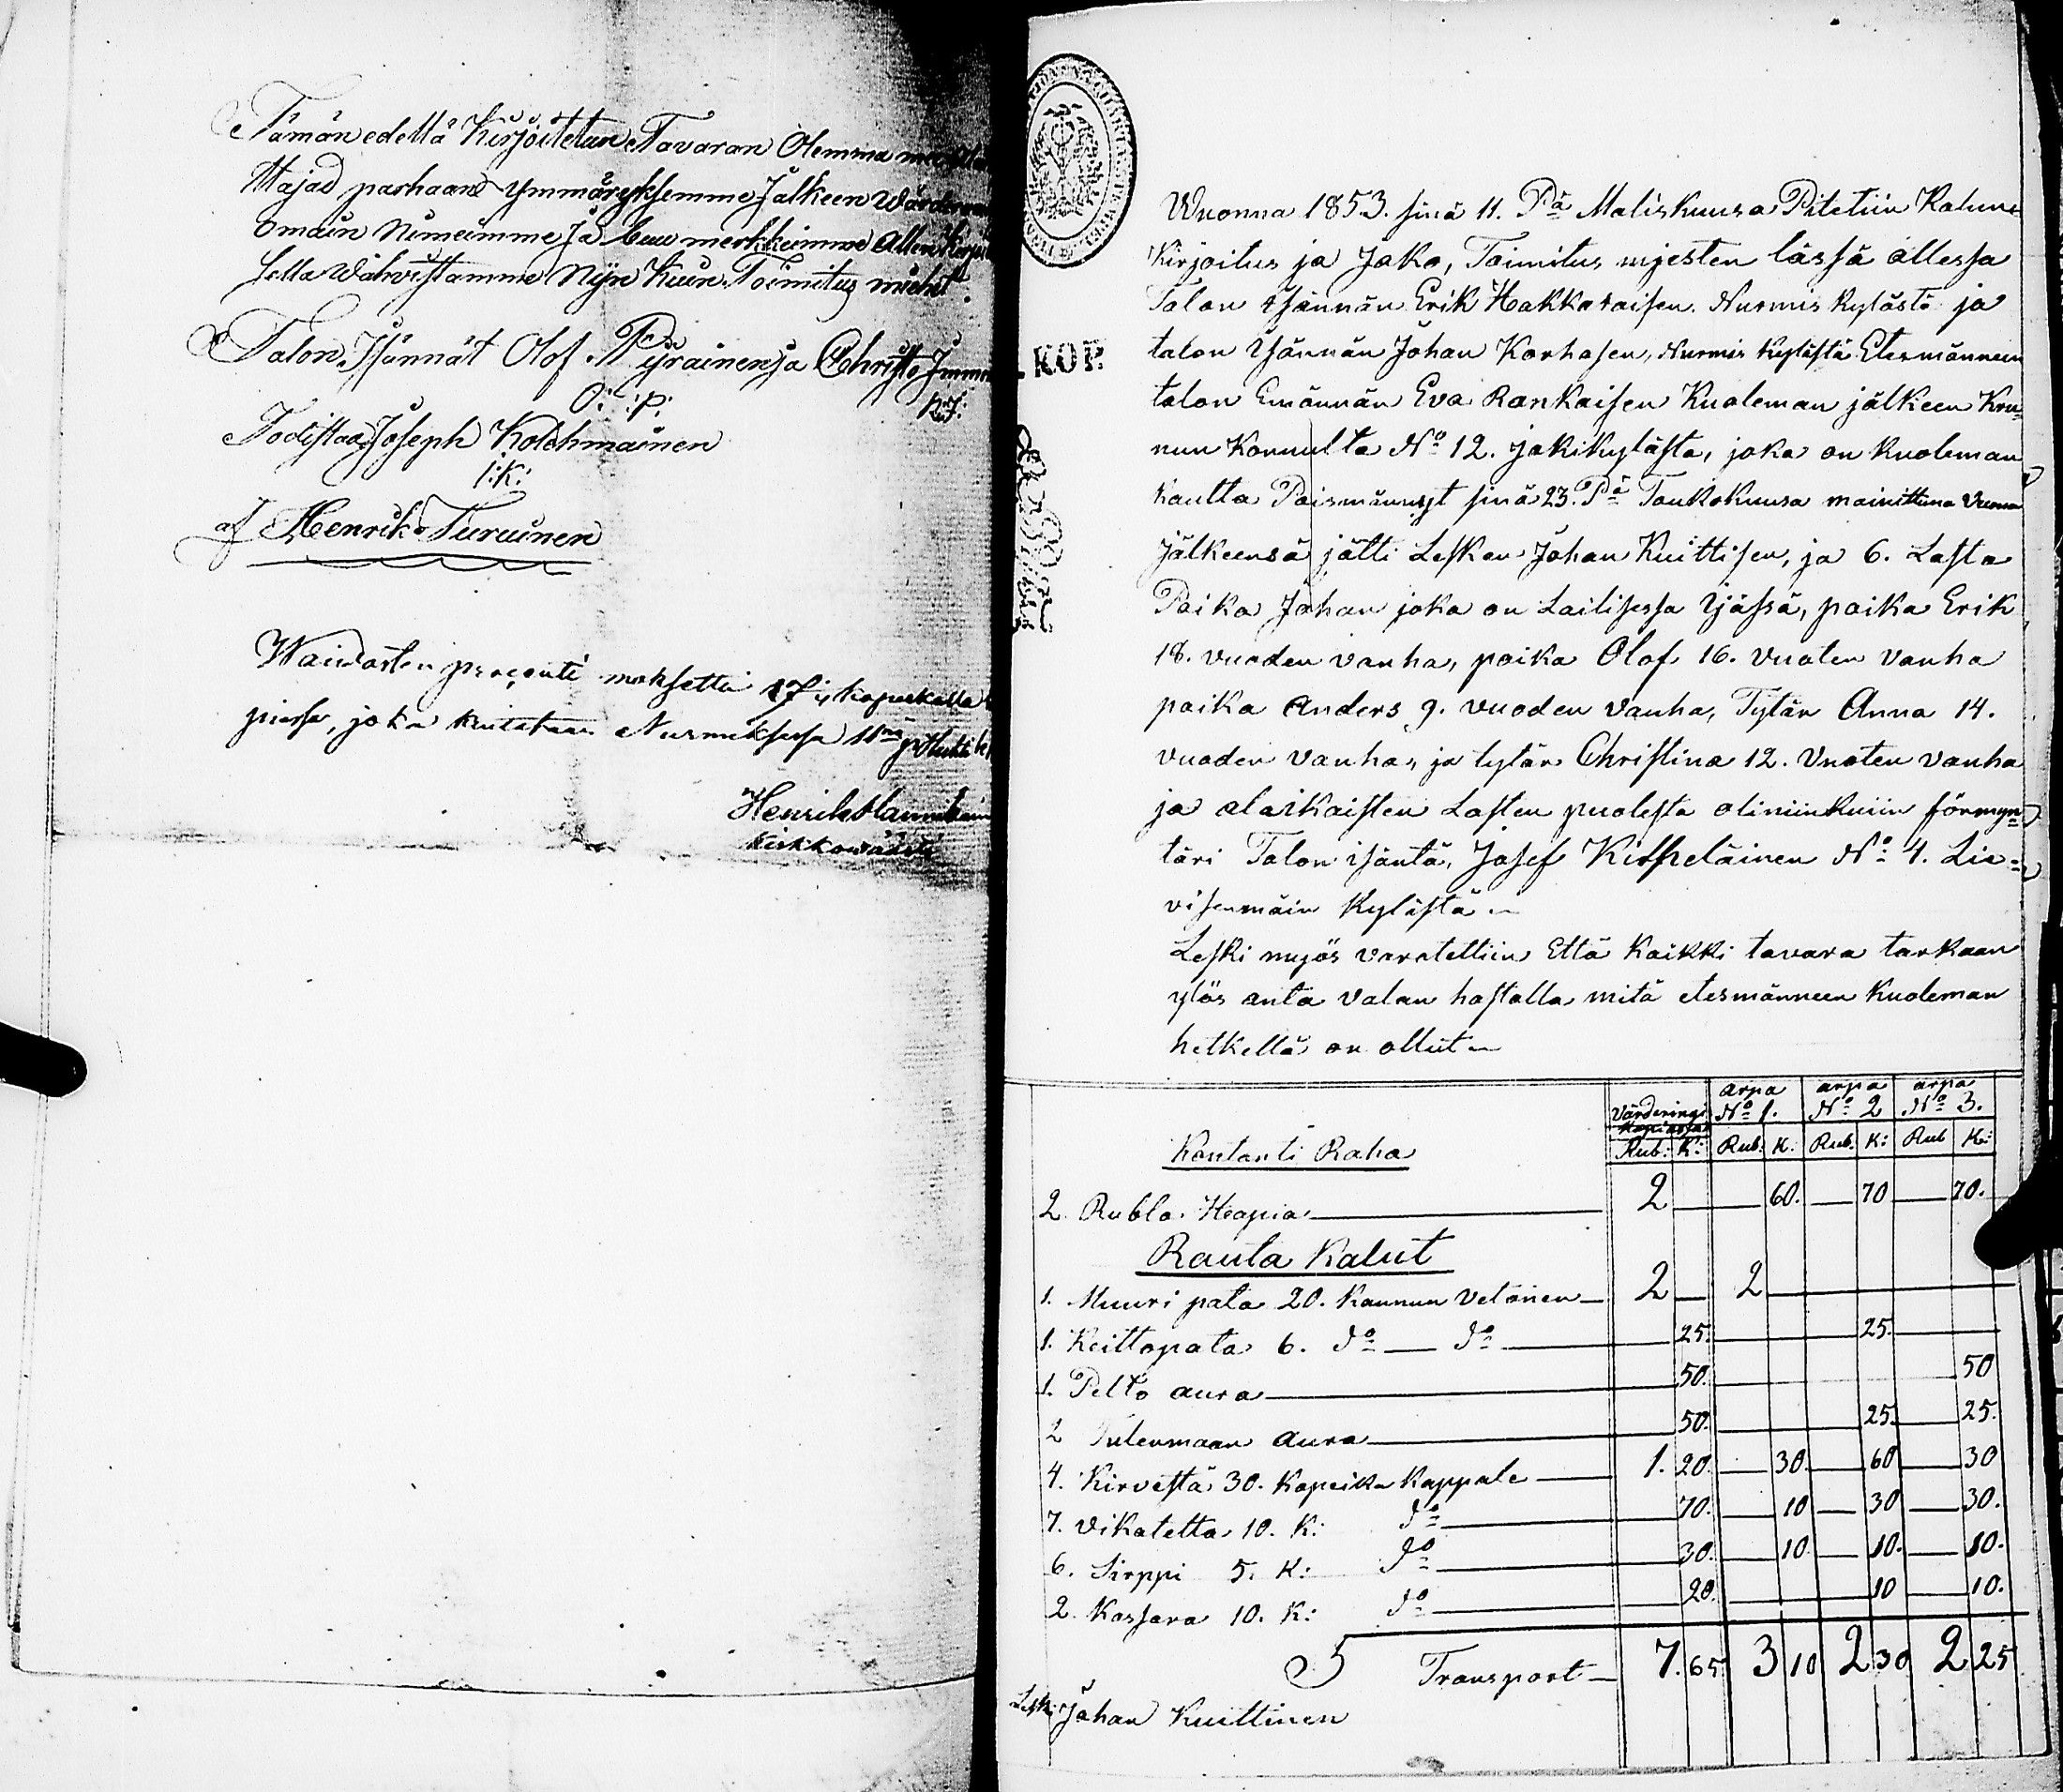 Tämän edellä Kirjoitetun Tavaran Olemma
ttajad parhaand ymmäryksemme Jälkeen
omain Nimeimme Ja buu merkkeimme Allen
sella Wahvistamme Nijn Kuin Toimitus miehet.
Talon Isännät Olof Pyrainen ja Christ
O: :P:
Todistaa Joseph Kolehmainen
I:K:
af Henrik Turuinen
Waivasten prosenti maksettu 17 ½ kopeekalla
piassa, joka kuitataan Nurmeksessa 11nä
Henrik
Kirkkoväärti
KOP.
Wuonna 1853. sinä 11. Pä Maliskuusa Pitetiin Kalun
Kirjoitus ja Jako, Toimitus mjesten läsfä ollessa
Talon Isännän Erik Hakkaraisen Nurmis Kylästä ja
talon Isännän Johan Korhosen, Nurmis Kylästä Etesmänneen
talon Emännän Eva Rankaisen Kuoleman jälkeen Kru-
nun Konnulta No 12. Jokikylästa, joka on Kuoleman
kautta Poismännyt sinä 23. Pä Toukokuusa mainittuna Vuonna
Jälkeensä jätti Lesken Johan Kuittisen, ja 6. Lasta
Poika Johan joka on Lailisessa Ijässä, poika Erik
18. vuoden vanha, poika Olof 16. vuoten vanha
poika Anders 9. vuoden vanha, Tytär Anna 14.
vuoden vanha, ja tytär Christina 12. Vuoten vanha
ja alaikaisten Lasten puolesta oliniinkuin förmyn
täri Talon isäntä, Josef Kitheläinen No 4. Lie=
visenmäin Kylästä
Leski myös varotettiin Että Kaikki tavara tarkaan
ylös anta valan hastalla mitä etesmänneen Kuoleman
hetkellä on ollut
Värderingi arpa No 1. arpa No 2 arpa No 3.
Rub: K: Rub: K: Rub: K: Rub K:
Kontanti Raha
2 Rubla Hopia 2 60. 70 70.
Rauta Kalut
1. Muuri pata 20. Kannun Vetoinen 2 2
1. Keittopata 6. do do 25. 25.
1. Pelto aura 50. 50
2 Tulenmaan aura 50. 25. 25.
4. Kirvestä 30. Kopeika Kappale 1. 20. 30. 60 30
7. Vikatetta 10. K: do 70. 10 30 30.
6. Sirppi 5. K: do 30. 10. 10. 10.
2. Kassara 10. K: do 20. 10 10.
Transport 7. 65 3 10 2 30 2 25
Leski Johan Kuittinen